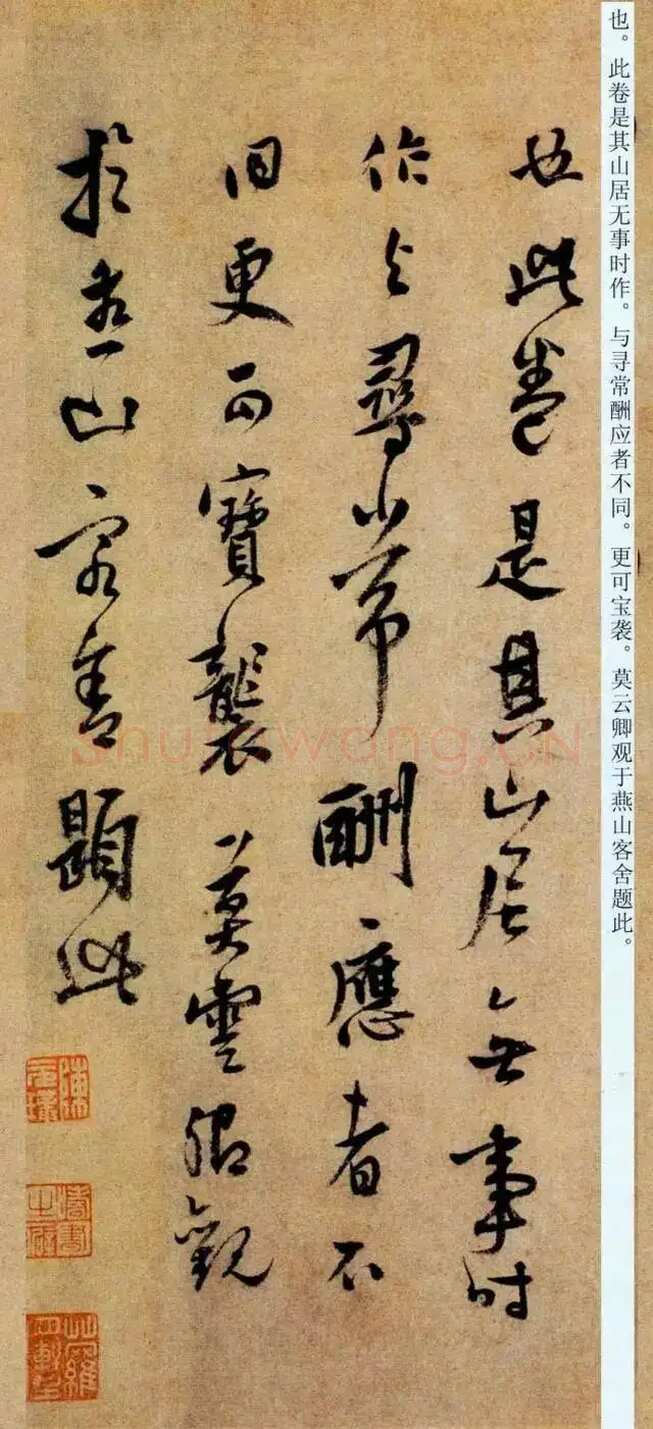 也。此卷是其山居无事时作。与寻常酬应者不同。更可宝袭。莫云卿观于燕山客舍题此。
也此卷是其山居无事时
作与尋常酬應者不
同更可寶襲莫雲卿觀
於燕山客舍題此
shufawang.CN